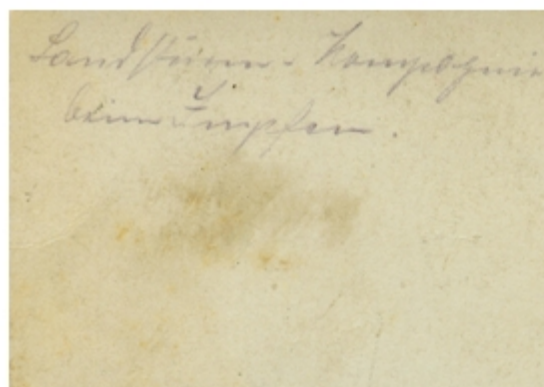 Landsturm-Kompagnie
beim Impfen.